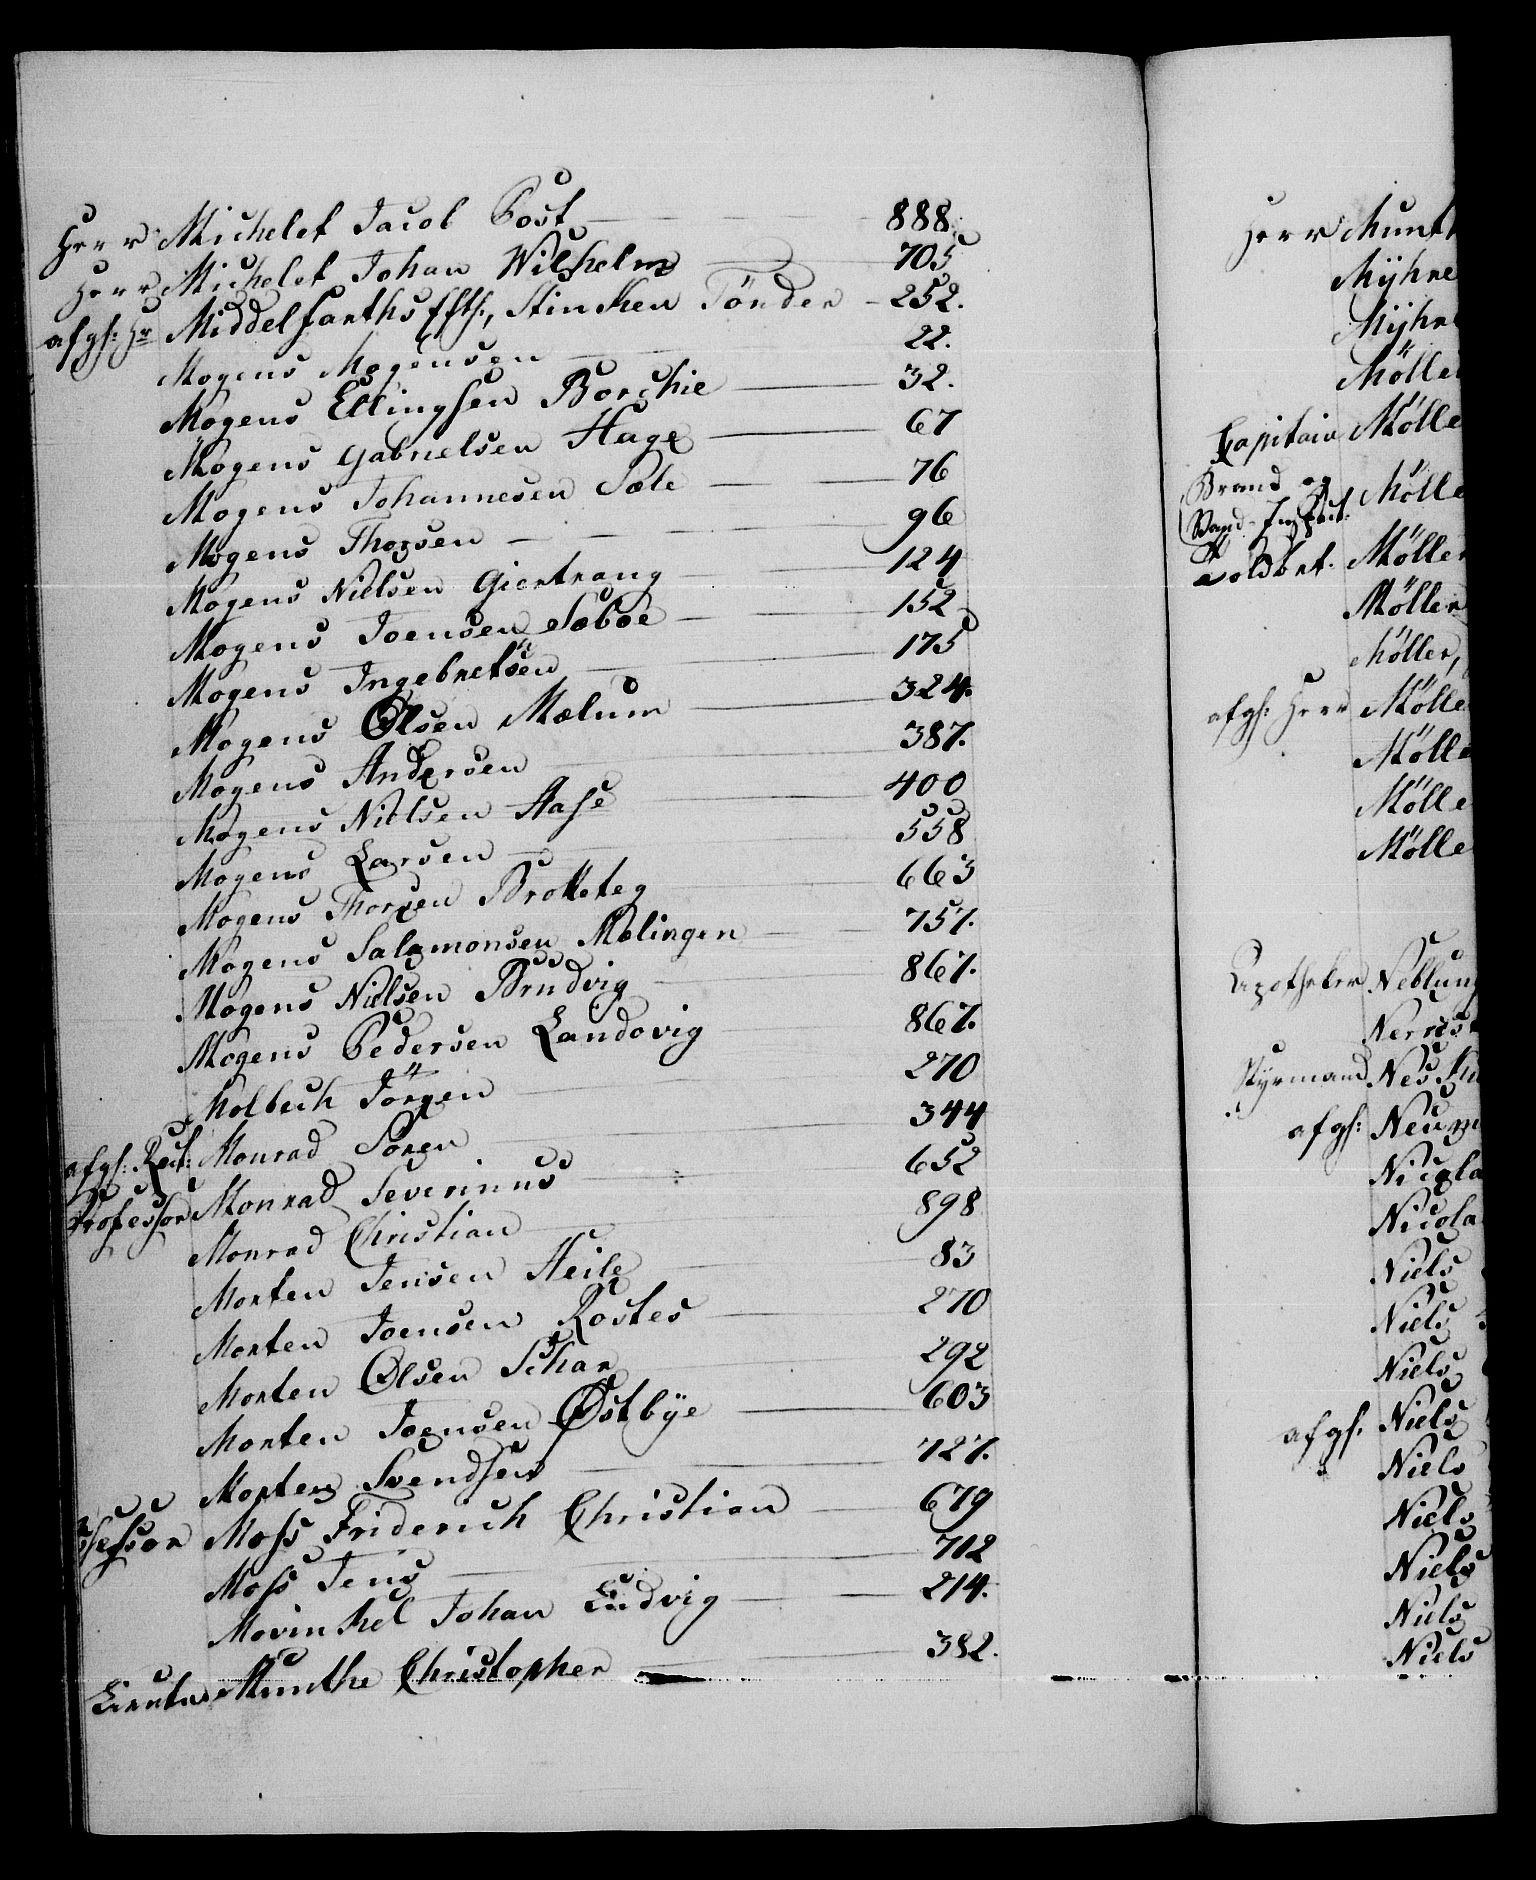 Herr Michelet Jacob Post 888.
Herr Michelet Johan Wilhelm 705
afgs: Hr Middelfarths Efts:, Stinchen Tönder 252.
Mogens Mogensen 22.
Mogens Ellingsen Borchie 32.
Mogens Gabrielsen Hage 67
Mogens Johannesen Sæle 76
Mogens Thorsen 96
Mogens Nielsen Giertrang 124
Mogens Joensen Sæboe 152
Mogens Ingebretsen 175
Mogens Olsen Mælum 324.
Mogens Andersen 387.
Mogens Nielsen Aase 400
Mogens Larsen 558
Mogens Thorsen Bratteteg 663
Mogens Salamonsen Mølingen 757.
Mogens Nielsen Brudvig 867.
Mogens Pedersen Landovig 867.
Molbech Jörgen 270
afgs: Rect: Monrad Soren 344
Professor Monrad Severinus 652
Monrad Christian 898
Morten Jensen Heile 83
Morten Joensen Rostes 270
Morten Olsen Schar 292
Morten Joensen Østbÿe 603
Morten Svendsen 727.
ssessor Moss Friderich Christian 679
Moss Jens 712
Movinkel Johan Ludvig 214.
Munthe Christopher 382.
Herr Munt
Mÿhre
Mÿhr
Mölle
Capitain Mölle
Brand og Mölle
Vand-Inspect:
Möller
Möller
Möller,
afgs: Herr Mölle
Mölle
Mölle
Mölle
Apotheker Neblung
Nerris
Styrmand Nes
afgs: Neum
Nicola
Nicola
Niels
Niels
Niels
afgs. Niels
Niels
Niels
Niels
Niels
Niels